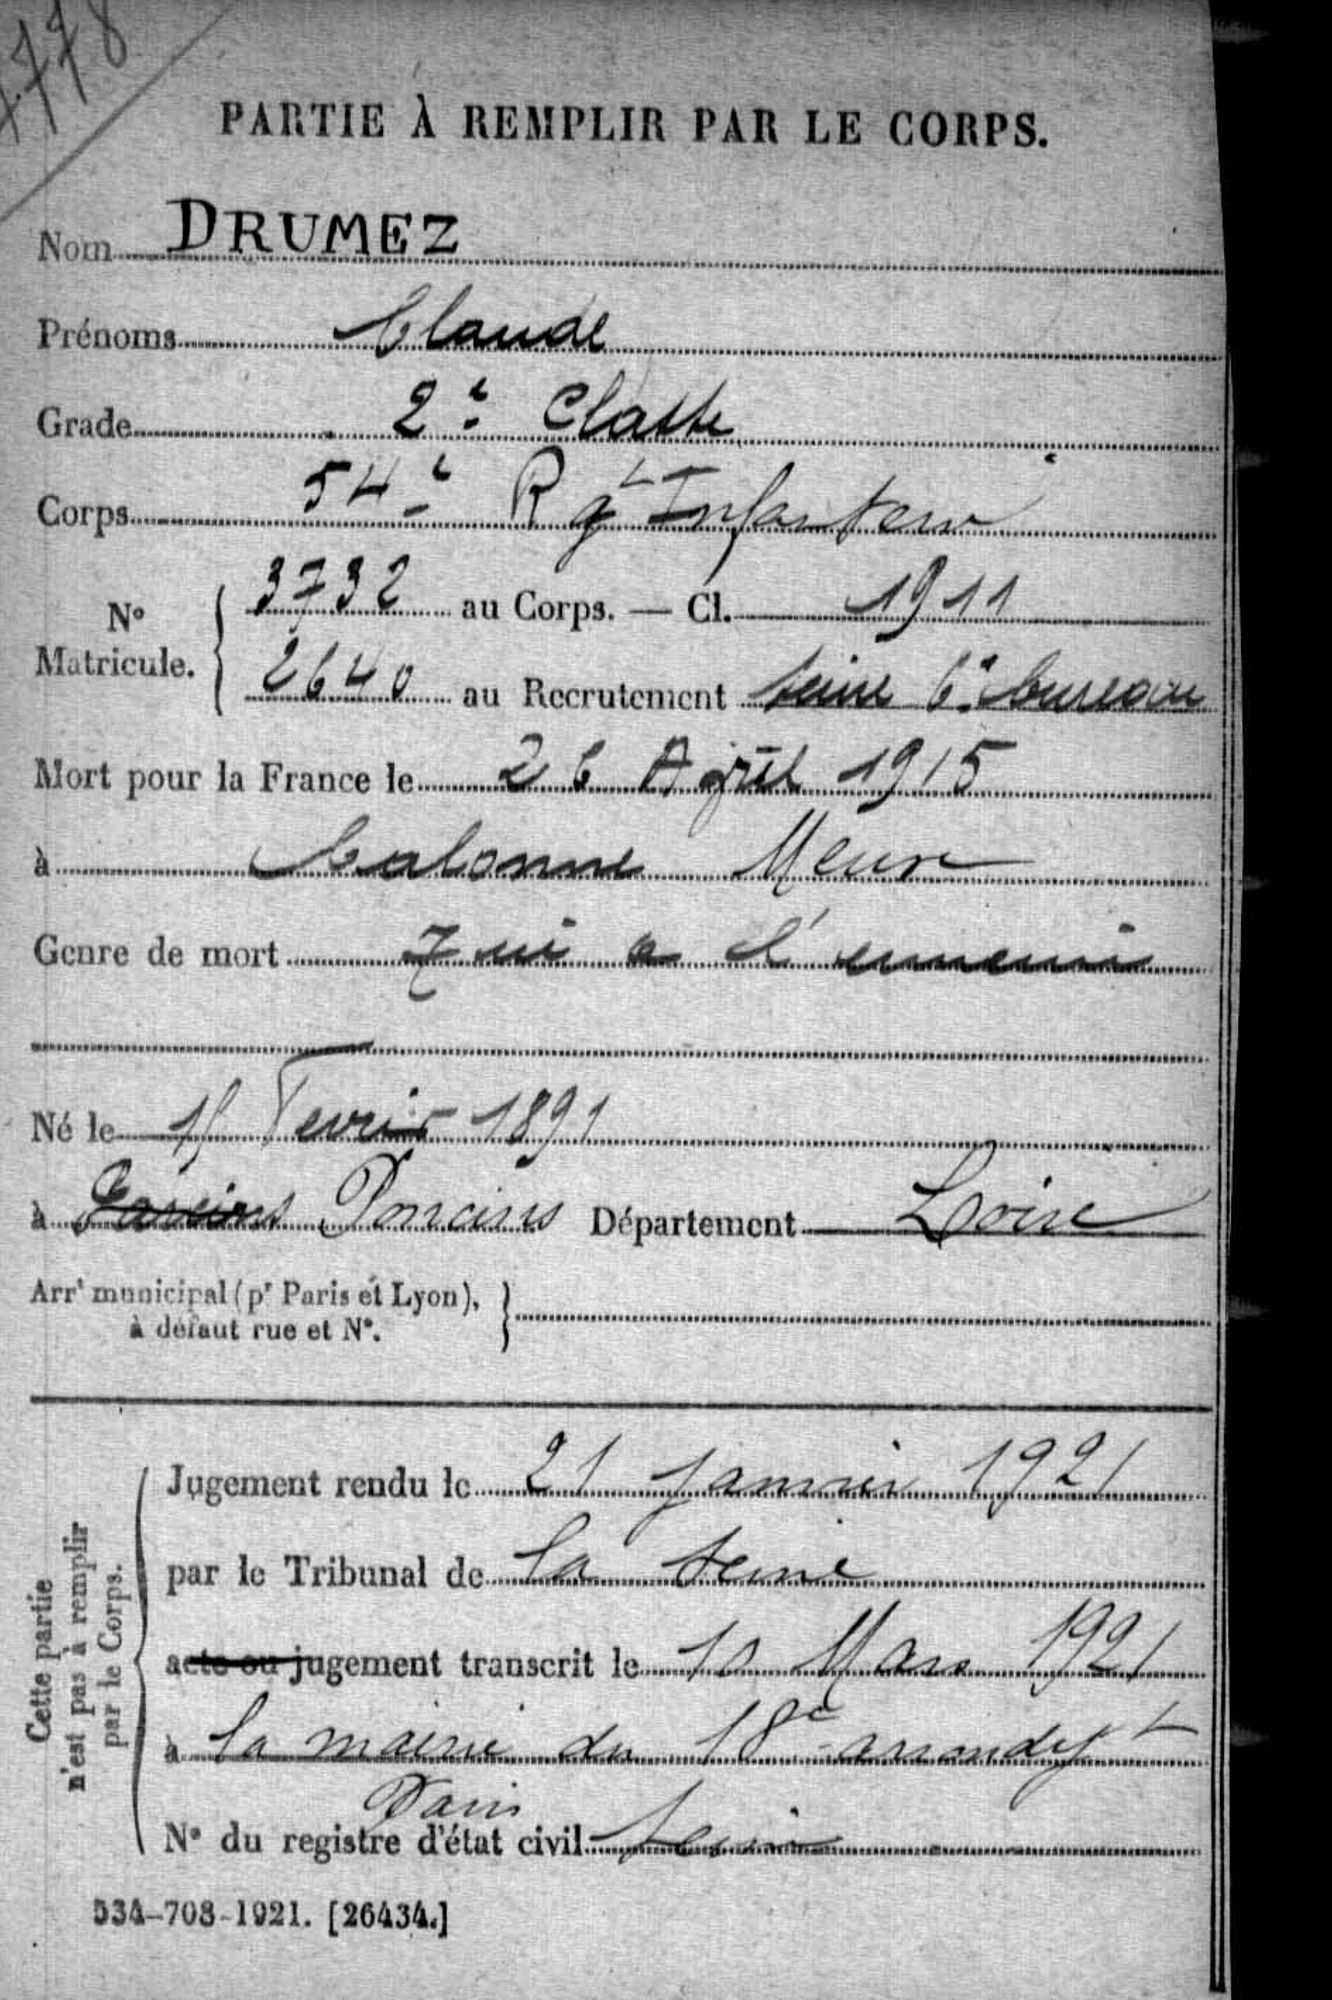 PARTIE À REMPLIR PAR LE CORPS.
Nom DRUMEZ
Prénoms Claude
Grade 2e Classe
Corps 54e Rgt Infanterie
No Matricule. 3732 au Corps. — Cl. 1911
2640 au Recrutement Seine 6e bureau
Mort pour la France le 26 Avril 1915
à Calonne Meuse
Genre de mort Tué a l'ennemi
Né le Fevrier 1891
à Poncins Département Loire
Arrt municipal (pr Paris et Lyon),
à défaut rue et No.
Cette partie
n'est pas à remplir
par le Corps.
Jugement rendu le 21 janvier 1921
par le Tribunal de la Seine
acte ou jugement transcrit le 10 Mars 1921
à la mairie du 18e arrondt
Paris
No du registre d'état civil Seine
534-708-1921. [26434.]